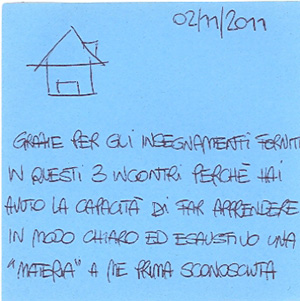 02/11/2011
GRAZIE PER GLI INSEGNAMENTI FORNITI
IN QUESTI 3 INCONTRI PERCHÈ HAI
AVUTO LA CAPACITÀ DI FAR APPRENDERE
IN MODO CHIARO ED ESAUSTIVO UNA
"MATERIA" A ME PRIMA SCONOSCIUTA